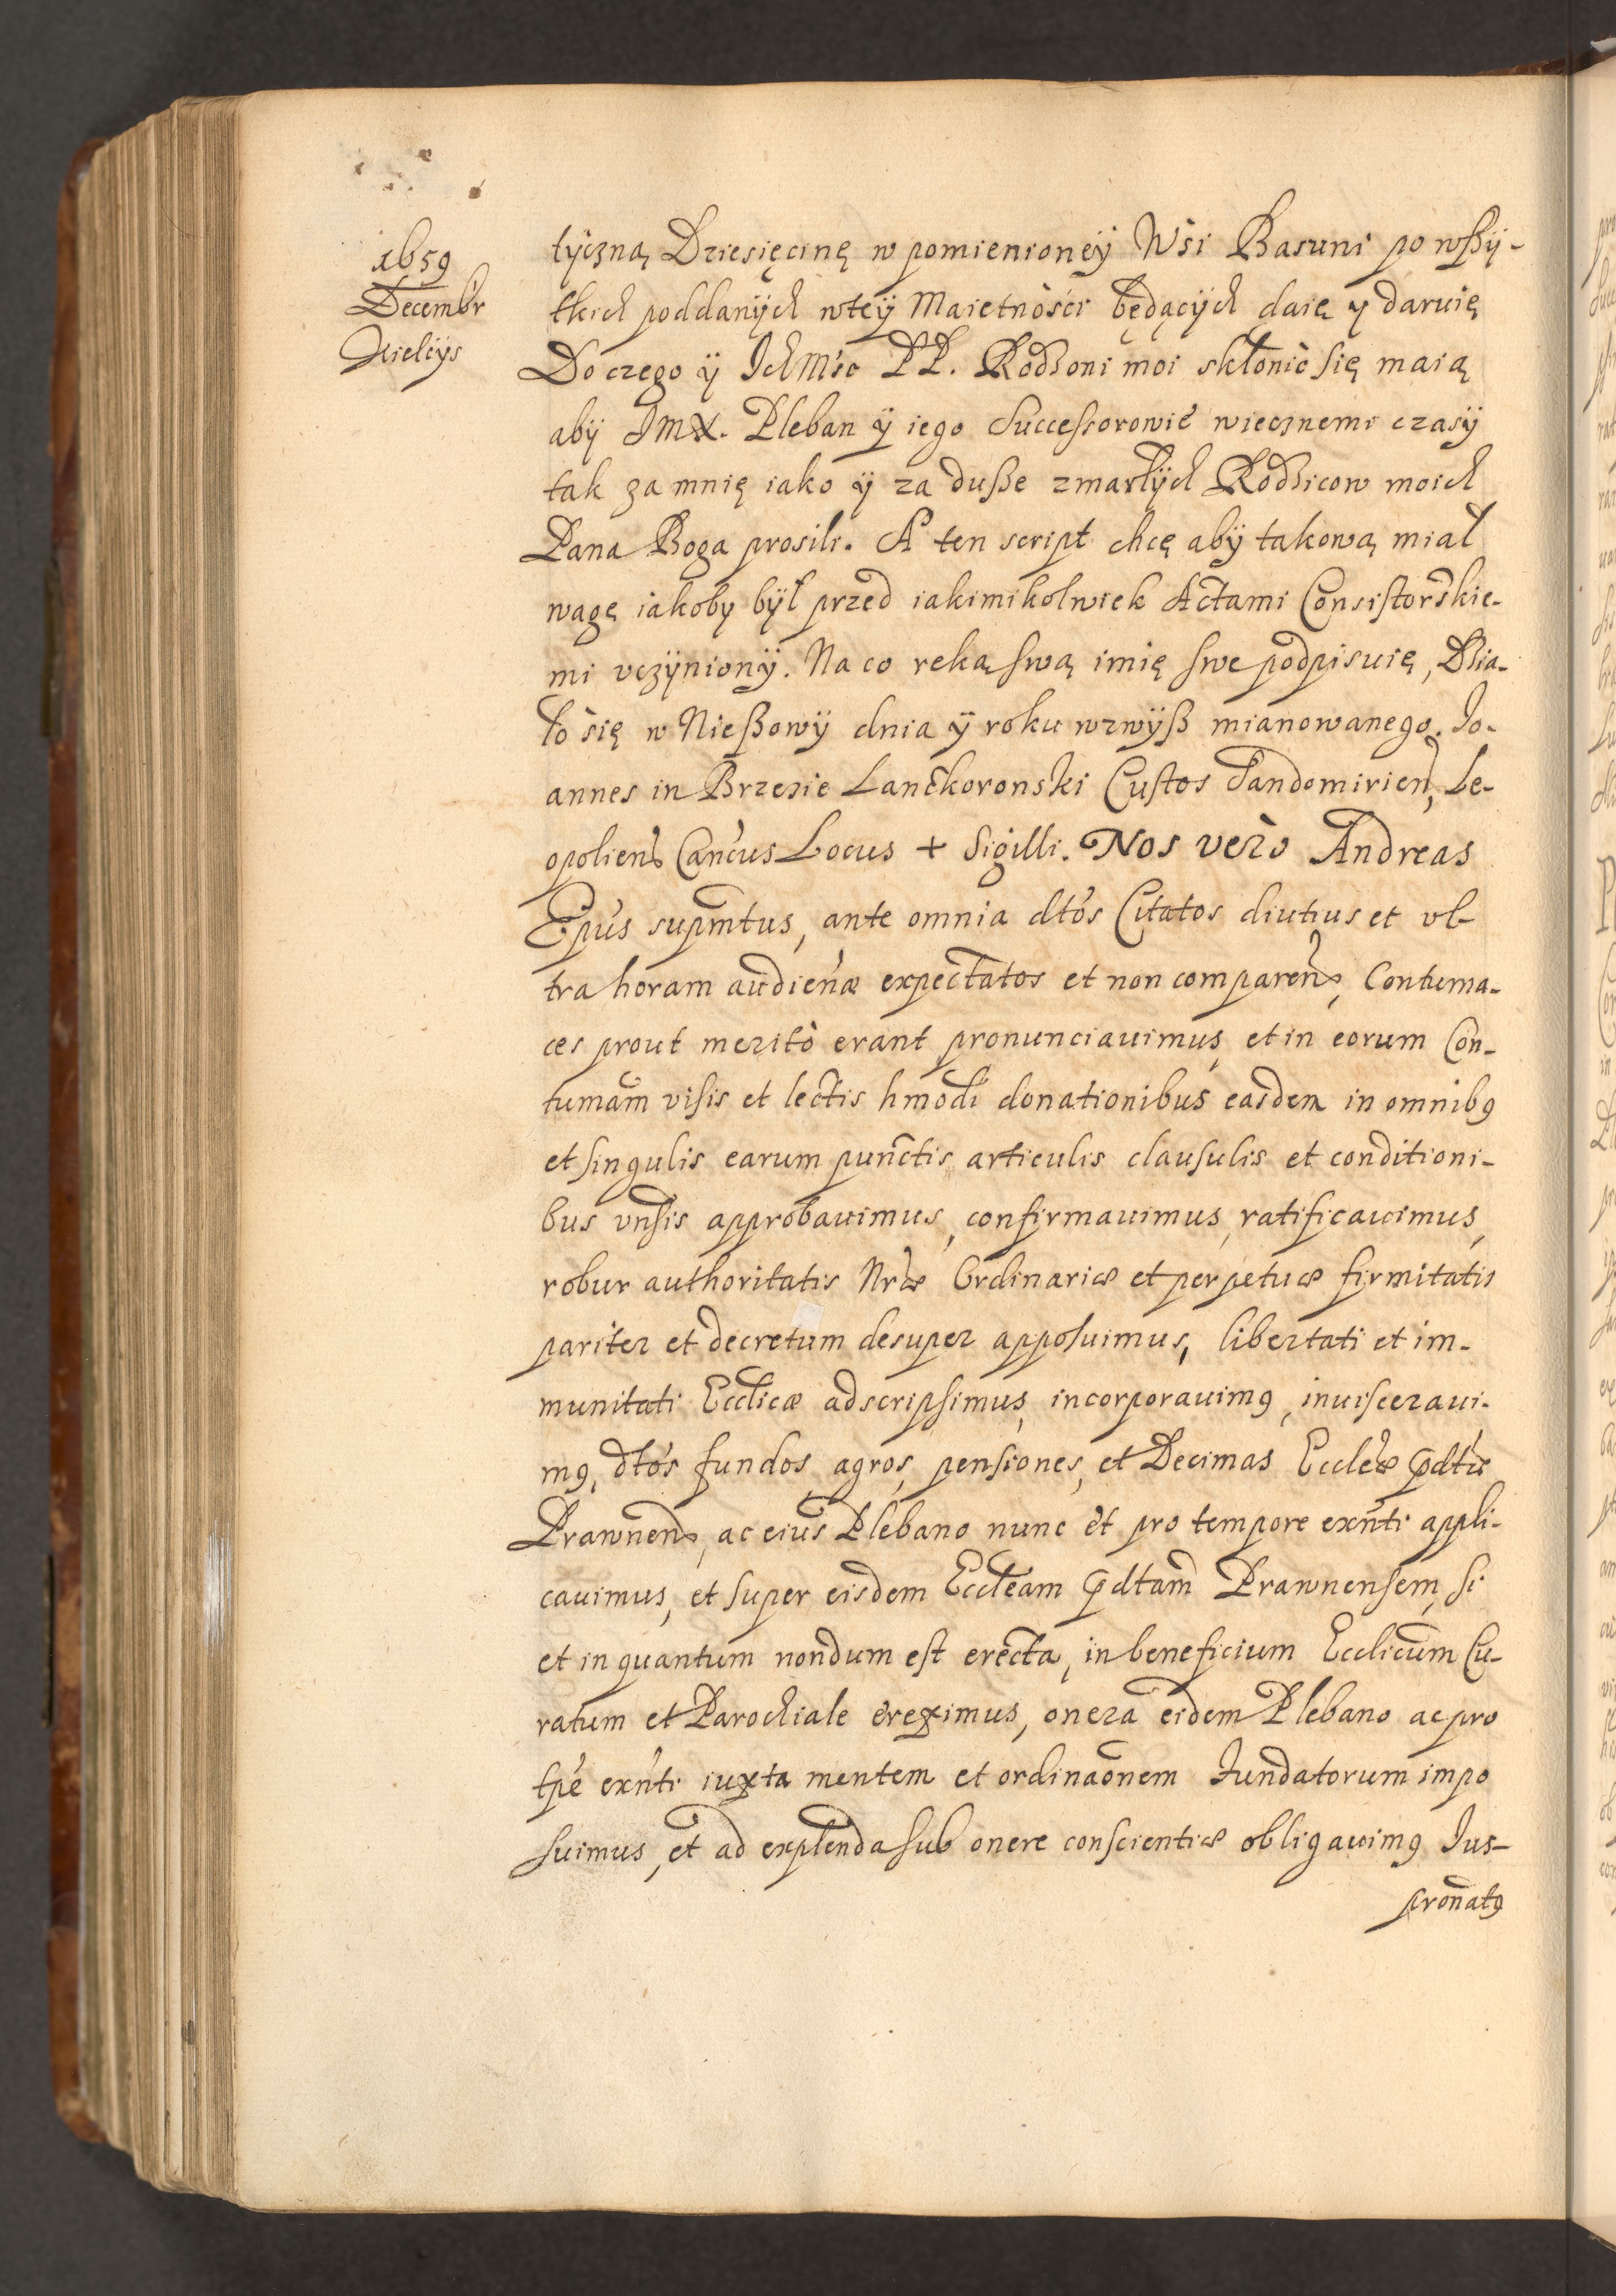 1659
Decembr
Kielcÿs
tÿczną Dziesięcinę w pomienionëÿ Wśi Basuni po wßÿ-
tkich poddanÿch wteÿ Maiętnośći będącÿch daię y daruię
Do czego ÿ IchMśc PP. Rodzoni moi skłonić się maią
abÿ JmX. Pleban ÿ iego Successorowie wiecznemi czasÿ
tak za mnię iako ÿ za duße zmarłÿch Rodzicow moich
Pana Boga prosili. A ten script chcę abÿ takową miał
wagę iakoby bÿł przed iakimikolwiek Actami Consistorskie-
mi vczÿnionÿ. Na co ręką swą imię swe podpisuię, Dzia-
ło się w Nießowÿ dnia ÿ roku wzwÿß mianowanego. Jo-
annes in Brzezie Lanckoronski Custos Sandomirien, Le-
opolien Cancus Locus + Sigilli. Nos verò Andreas
Epus supmtus, ante omnia dtos Citatos diutius et vl-
tra horam audienæ expectatos et non comparen, Contuma-
ces prout meritò erant pronunciauimus, et in eorum Con-
tumam visis et lectis hmodi donationibus easdem in omnibꝰ
et singulis earum punctis, articulis clausulis et conditioni-
bus vnsis approbauimus, confirmauimus, ratificauimus,
robur authoritatis Nræ Ordinariæ et perpetuæ firmitatis
pariter et decretum desuper apposuimus, libertati et im-
munitati Ecclicæ adscripsimus, incorporauimꝰ, inuisceraui-
mꝰ, dtos fundos, agros, pensiones, et Decimas Eccleæ pdtæ
Prawnen, ac eius Plebano nunc et pro tempore exnti appli-
cauimus, et super eisdem Eccleam pdtam Prawnensem, si
et in quantum nondum est erecta, in beneficium Ecclicum Cu-
ratum et Parochiale ereximus, onera eidem Plebano ac pro
tpe exnti iuxta mentem et ordinaonem Fundatorum impo
suimus, et ad explenda sub onere conscientiæ obligauimꝰ Jus-
pronatꝰ